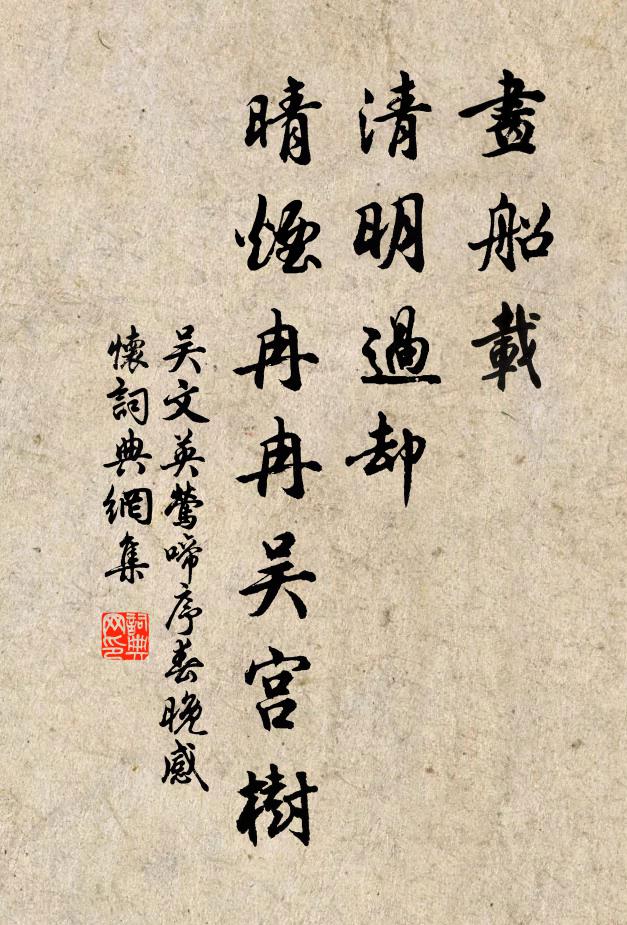 畫船載
清明過却
晴煙冉冉吳宮樹
吴文英鶯啼序春晚感
懷詞典網集
詞典
网印